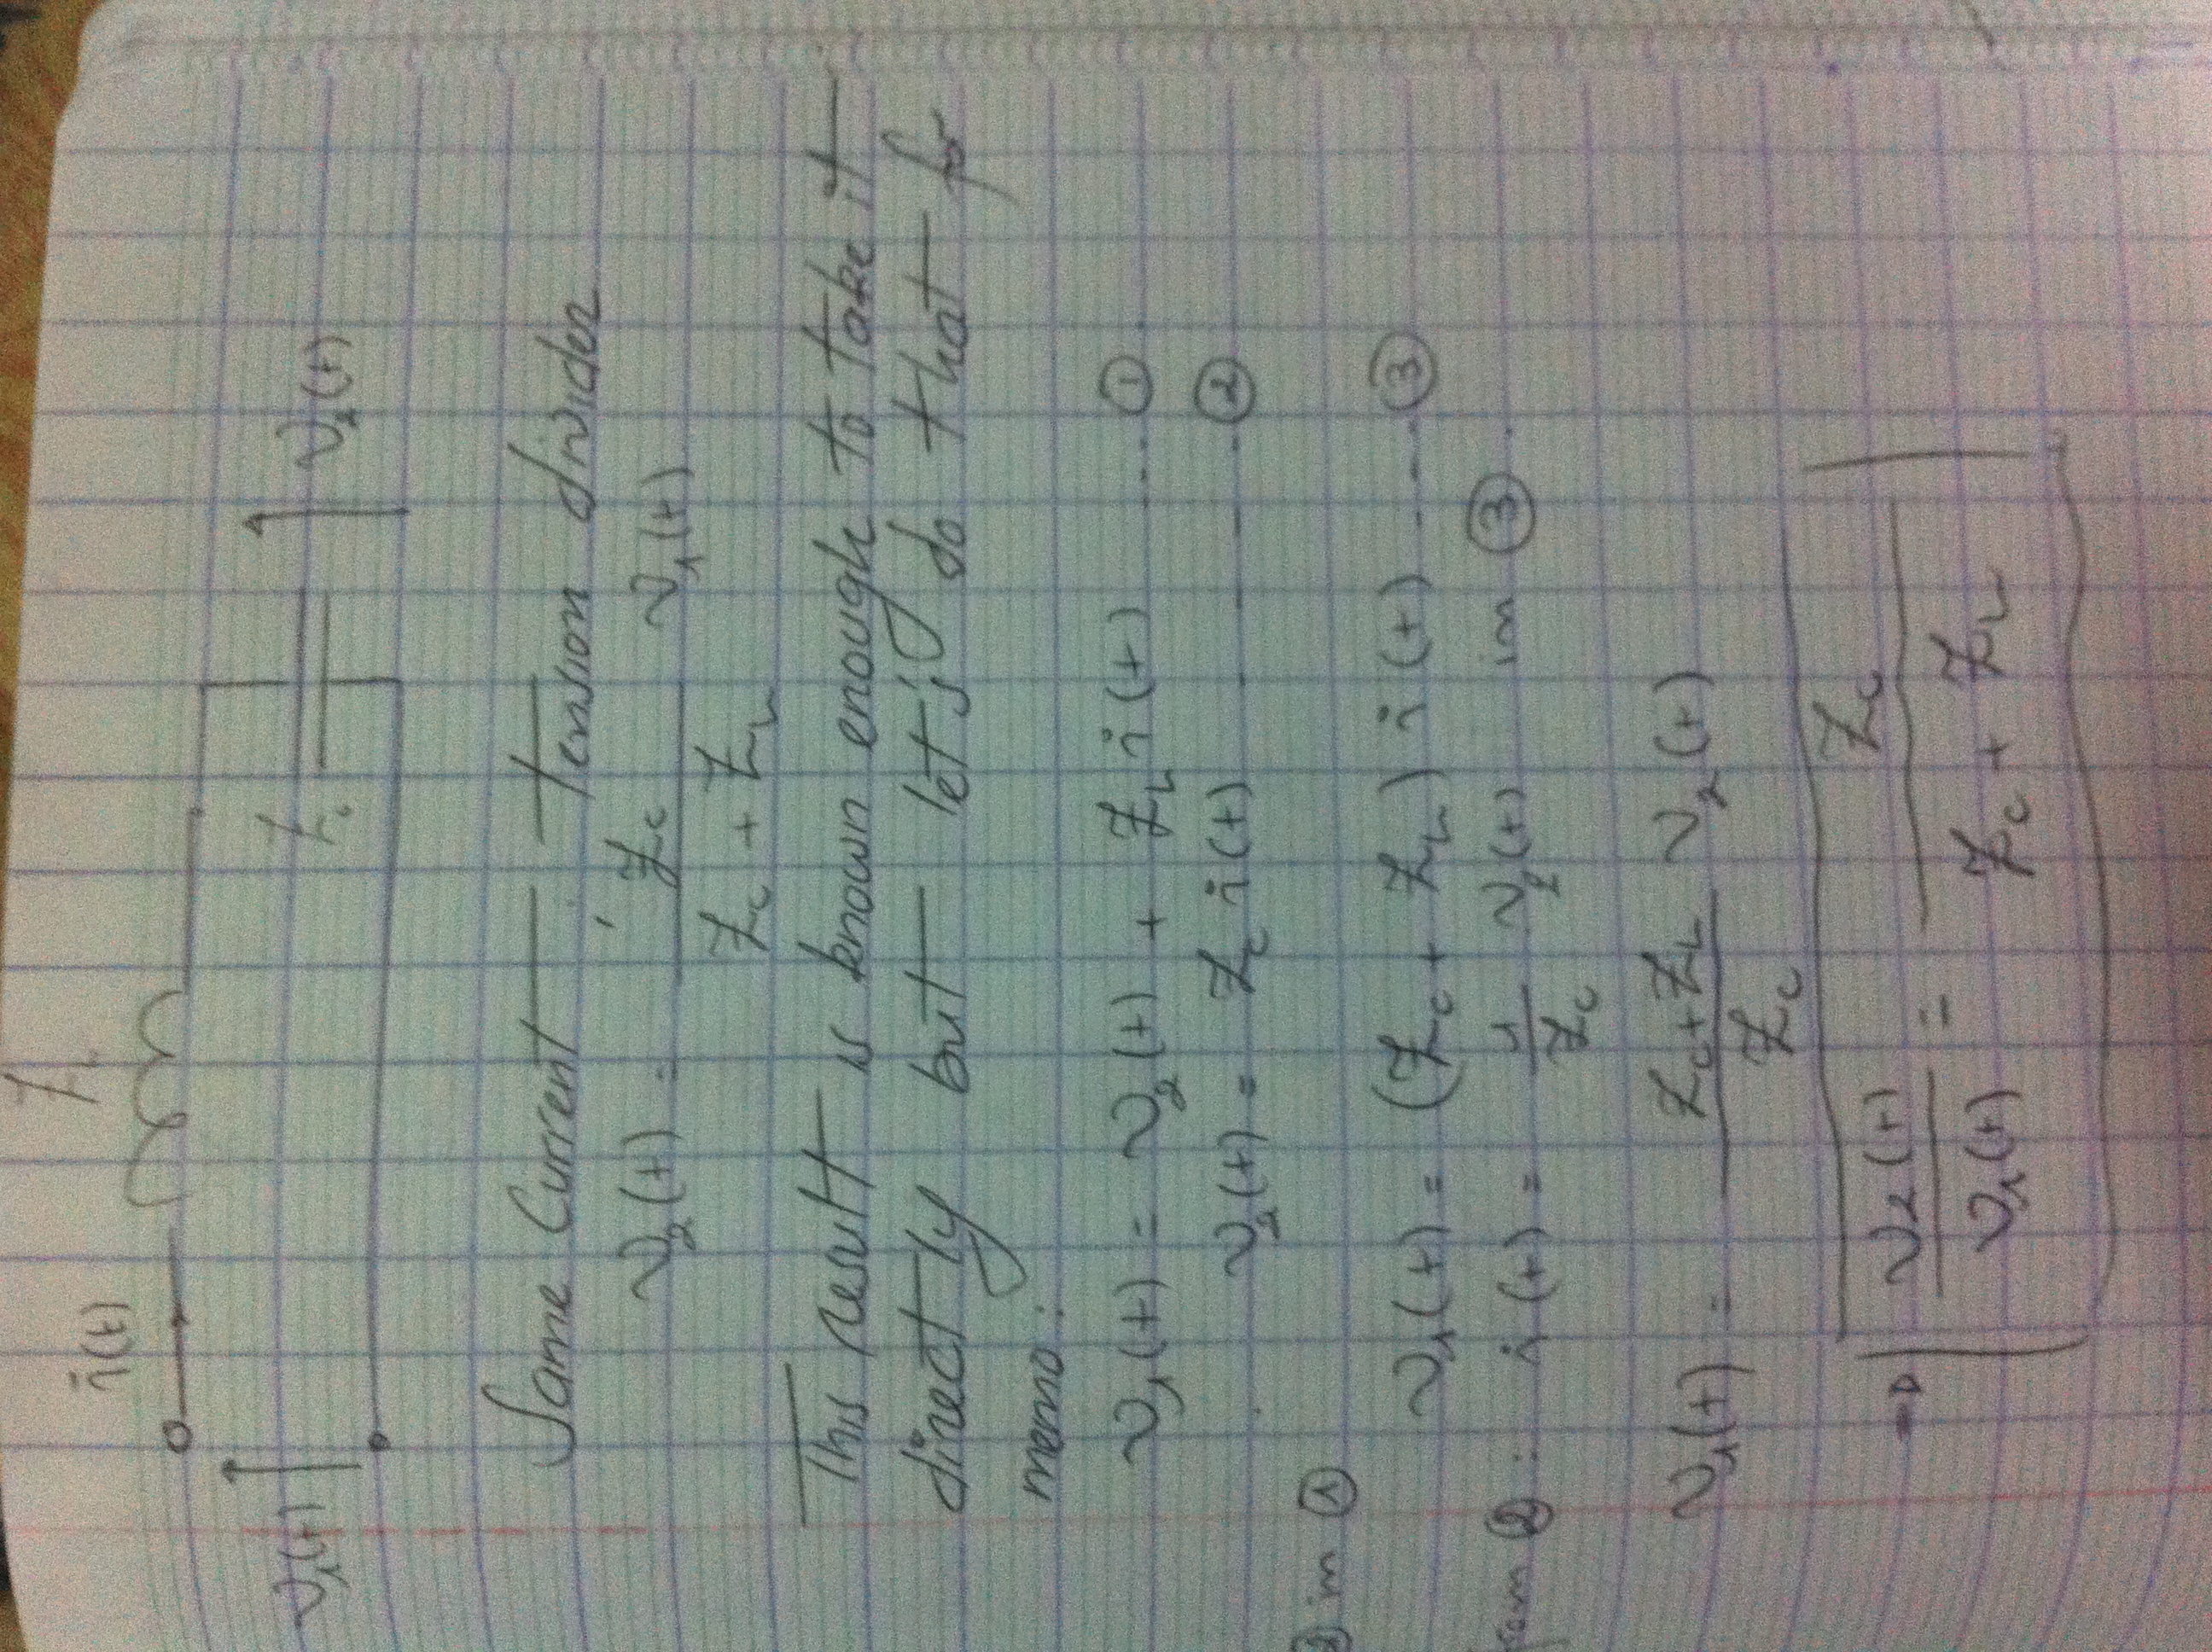 i(t) Z_L
v₁(t) Z_c v₂(t)
Same Current tension divider
v₂(t) = Z_c / (Z_c + Z_L) v₁(t)
This result is known enough to take it
directly but let's do that for
memo:
v₁(t) = v₂(t) + Z_L i(t) .... ①
v₂(t) = Z_c i(t) - - - - - ②
② in ①
v₁(t) = (Z_c + Z_L) i(t) - - - ③
from ② : i(t) = 1/Z_c v₂(t) in ③.
v₁(t) = (Z_c + Z_L)/Z_c v₂(t)
⇒ v₂(t)/v₁(t) = Z_c / (Z_c + Z_L)